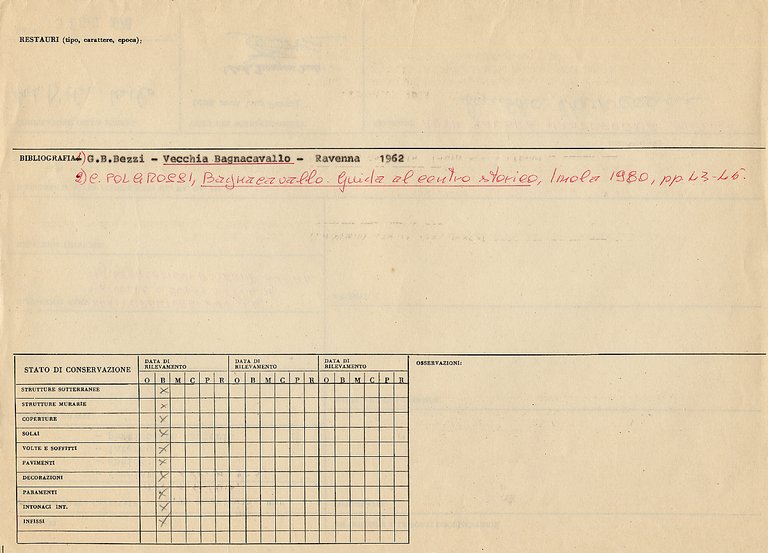 RESTAURI (tipo, carattere, epoca):
BIBLIOGRAFIA: 1) G.B.Bezzi - Vecchia Bagnacavallo - Ravenna 1962
2) C. POLGROSSI, Bagnacavallo. Guida al centro storico, Imola 1980, pp. 43-45.
STATO DI CONSERVAZIONE
DATA DI RILEVAMENTO
DATA DI RILEVAMENTO
DATA DI RILEVAMENTO
OSSERVAZIONI:
O B M C P R O B M C P R O B M C P R
STRUTTURE SOTTERRANEE X
STRUTTURE MURARIE X
COPERTURE X
SOLAI X
VOLTE E SOFFITTI X
PAVIMENTI X
DECORAZIONI X
PARAMENTI X
INTONACI INT. X
INFISSI X